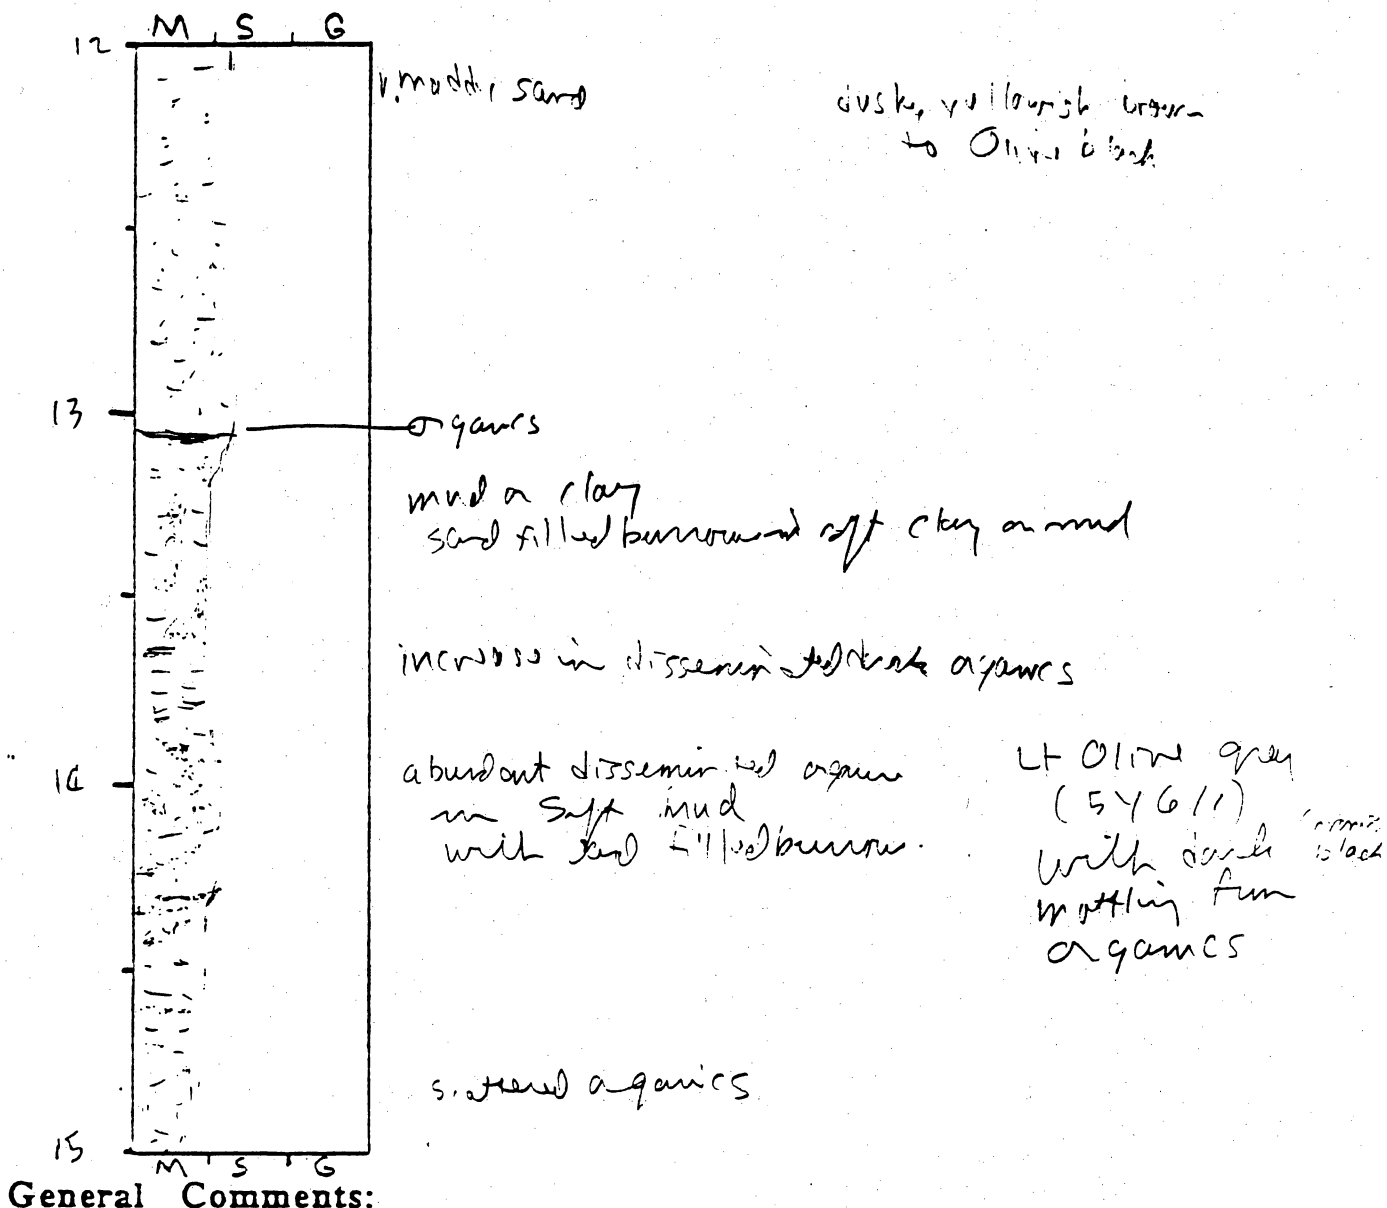 M S G
12
v. muddy sand
dusky yellowish brown
to Olive black
13
organics
mud or clay
sand filled burrows in soft clay or mud
increase in disseminated dark organics
14
abundant disseminated organics
in Soft mud
with sand filled burrows.
Lt Olive grey
(5Y6/1)
with dark
black
mottling from
organics
scattered organics
15
M S G
General Comments: